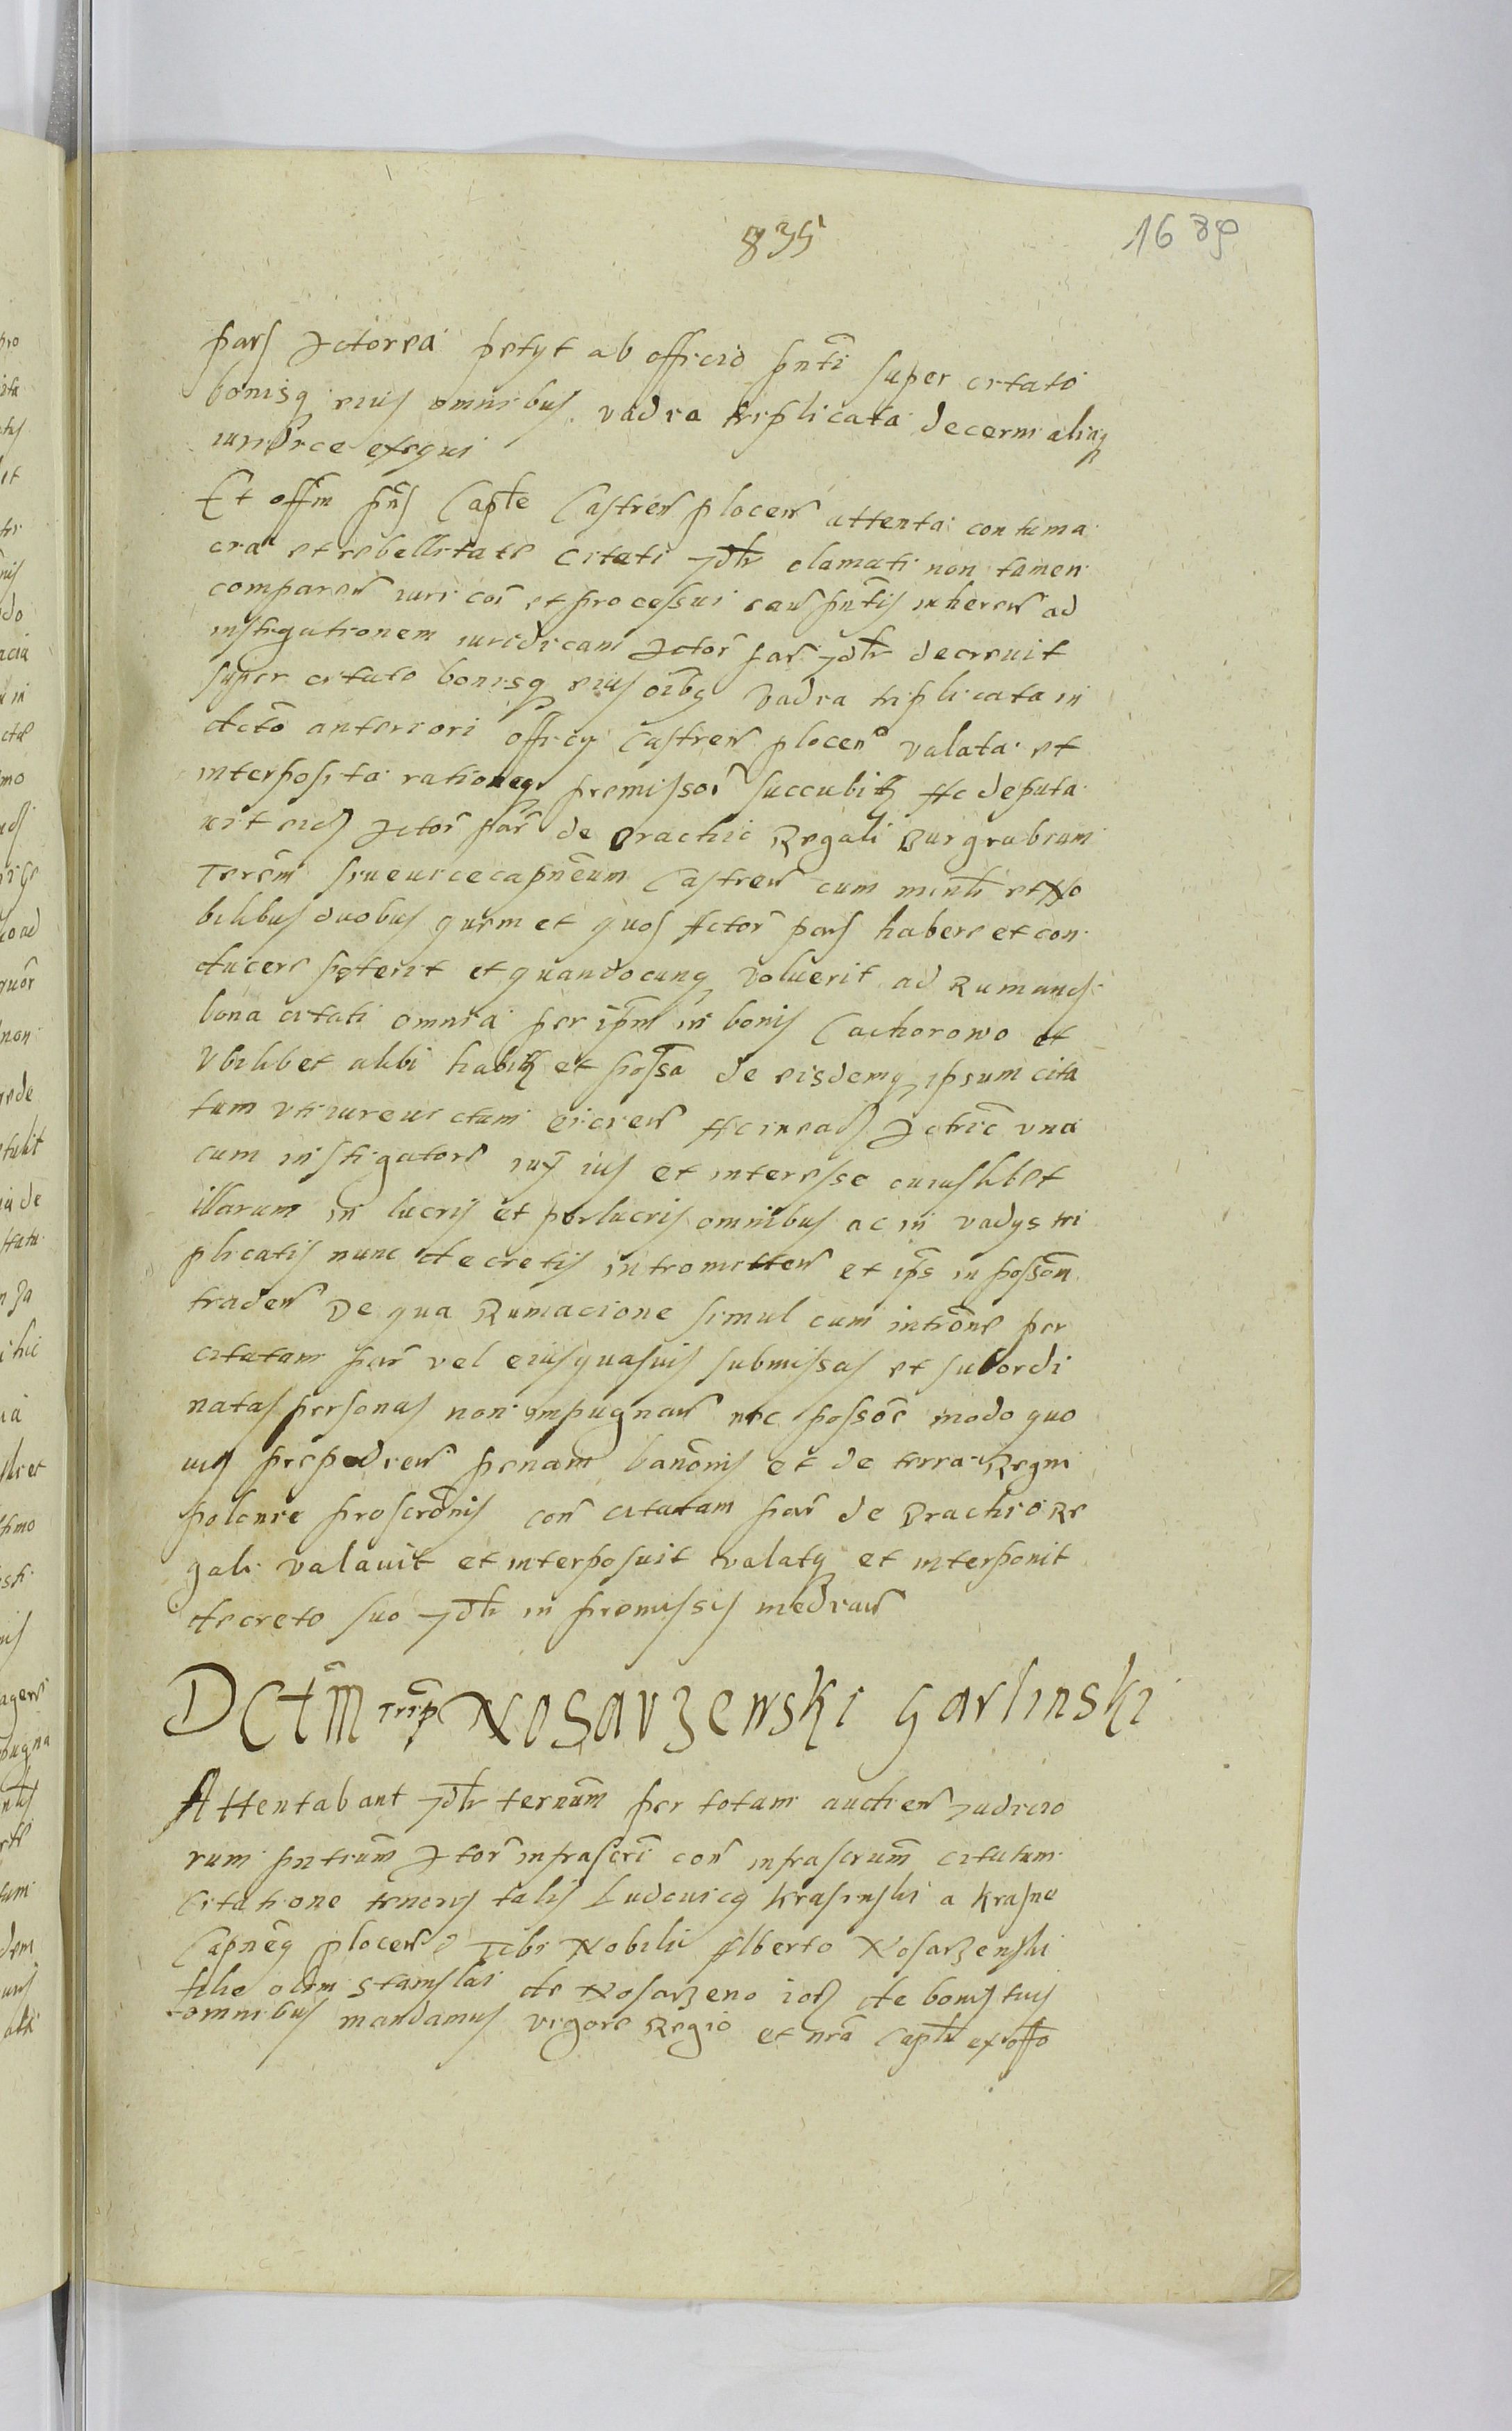 835
1639
pars Actorea petyt ab officio pnti super citato
bonisq eius omnibus vadia triplicata decerni aliaq
iuridice exequi
Et offm pns Caple Castren plocen attenta contuma
cia et rebellitate citati mdtr clamati non tamen
comparen iuri coi et processui cau pntis inheren ad
instigationem iuridicam Actor par mdtr decreuit
super citato bonisq eius oibq vadia triplicata in
dcto anteriori officy Castren plocen valata et
interposita rationeq premissor succubit Ac deputa
uit eid Actor par de brachio Regali Burgrabium
Terem siue vicecapneum Castren cum minli et No
bilibus duobus quem et quos Actor pars habere et con
ducere poterit et quandocunq voluerit ad Rumand
bona citati omnia per ipm in bonis Cachorowo et
Vbilibet alibi habit et possa de eisdemq ipsum cita
tum vti iureuictum eicien Ac in ead Actric una
cum instigatore iuy ius et interesse cuiuslibet
illarum in lucris et perlucris omnibus ac in vadys tri
plicatis nunc decretis intromitten et ips in posson
traden De qua Rumacione simul cum introne per
citatam par vel eius quasuis submissas et subordi
natas personas non impugnan nec possoe modo quo
uis prepedien penam banonis et de terra Regni
polonie proscronis con citatam par de Brachio Re
gali valauit et interposuit valatq et interponit
decreto suo mdtr in premissis median
Dctm trip Nosarzewski Garlinski
Attentabant mdtr ternum per totam audien Judicio
rum pntium Actor infrascri con infrascrium citatum
Citatione tenoris talis Ludouicq Krasinski a Krasne
Capneq plocen Tibi Nobili Alberto Nosarzewski
filio olim Stanislai de Nosarzewo iod de bonis tuis
omnibus mandamus vigore Regio et nra Capli ex offo